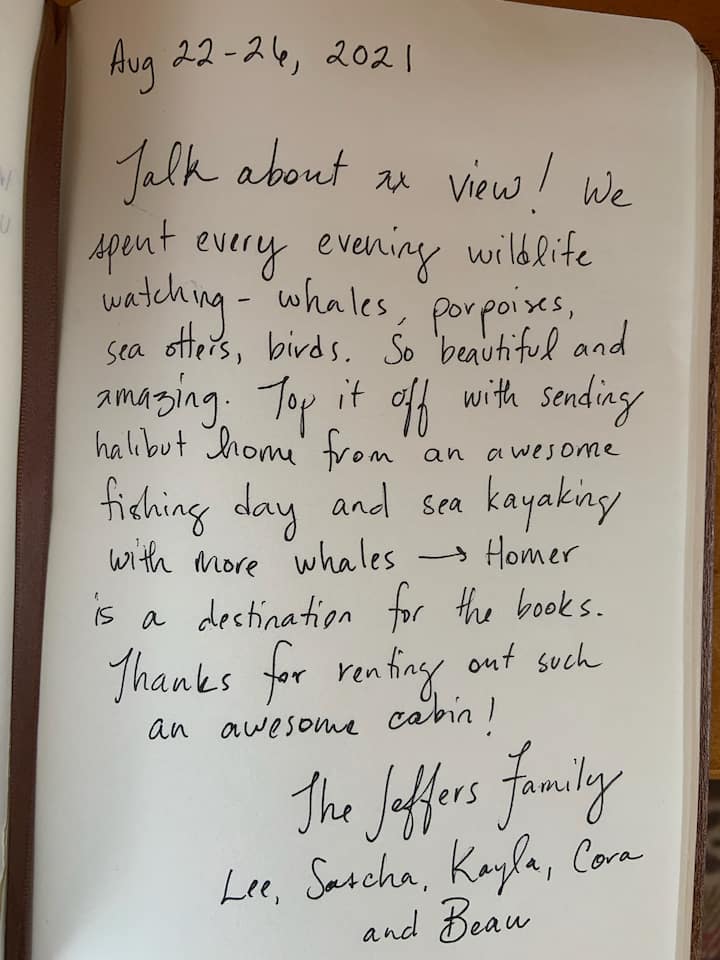 Aug 22-26, 2021
Talk about a view! We
spent every evening wildlife
watching - whales, porpoises,
sea otters, birds. So beautiful and
amazing. Top it off with sending
halibut home from an awesome
fishing day and sea kayaking
with more whales → Homer
is a destination for the books.
Thanks for renting out such
an awesome cabin!
The Jeffers Family
Lee, Sascha, Kayla, Cora
and Beau